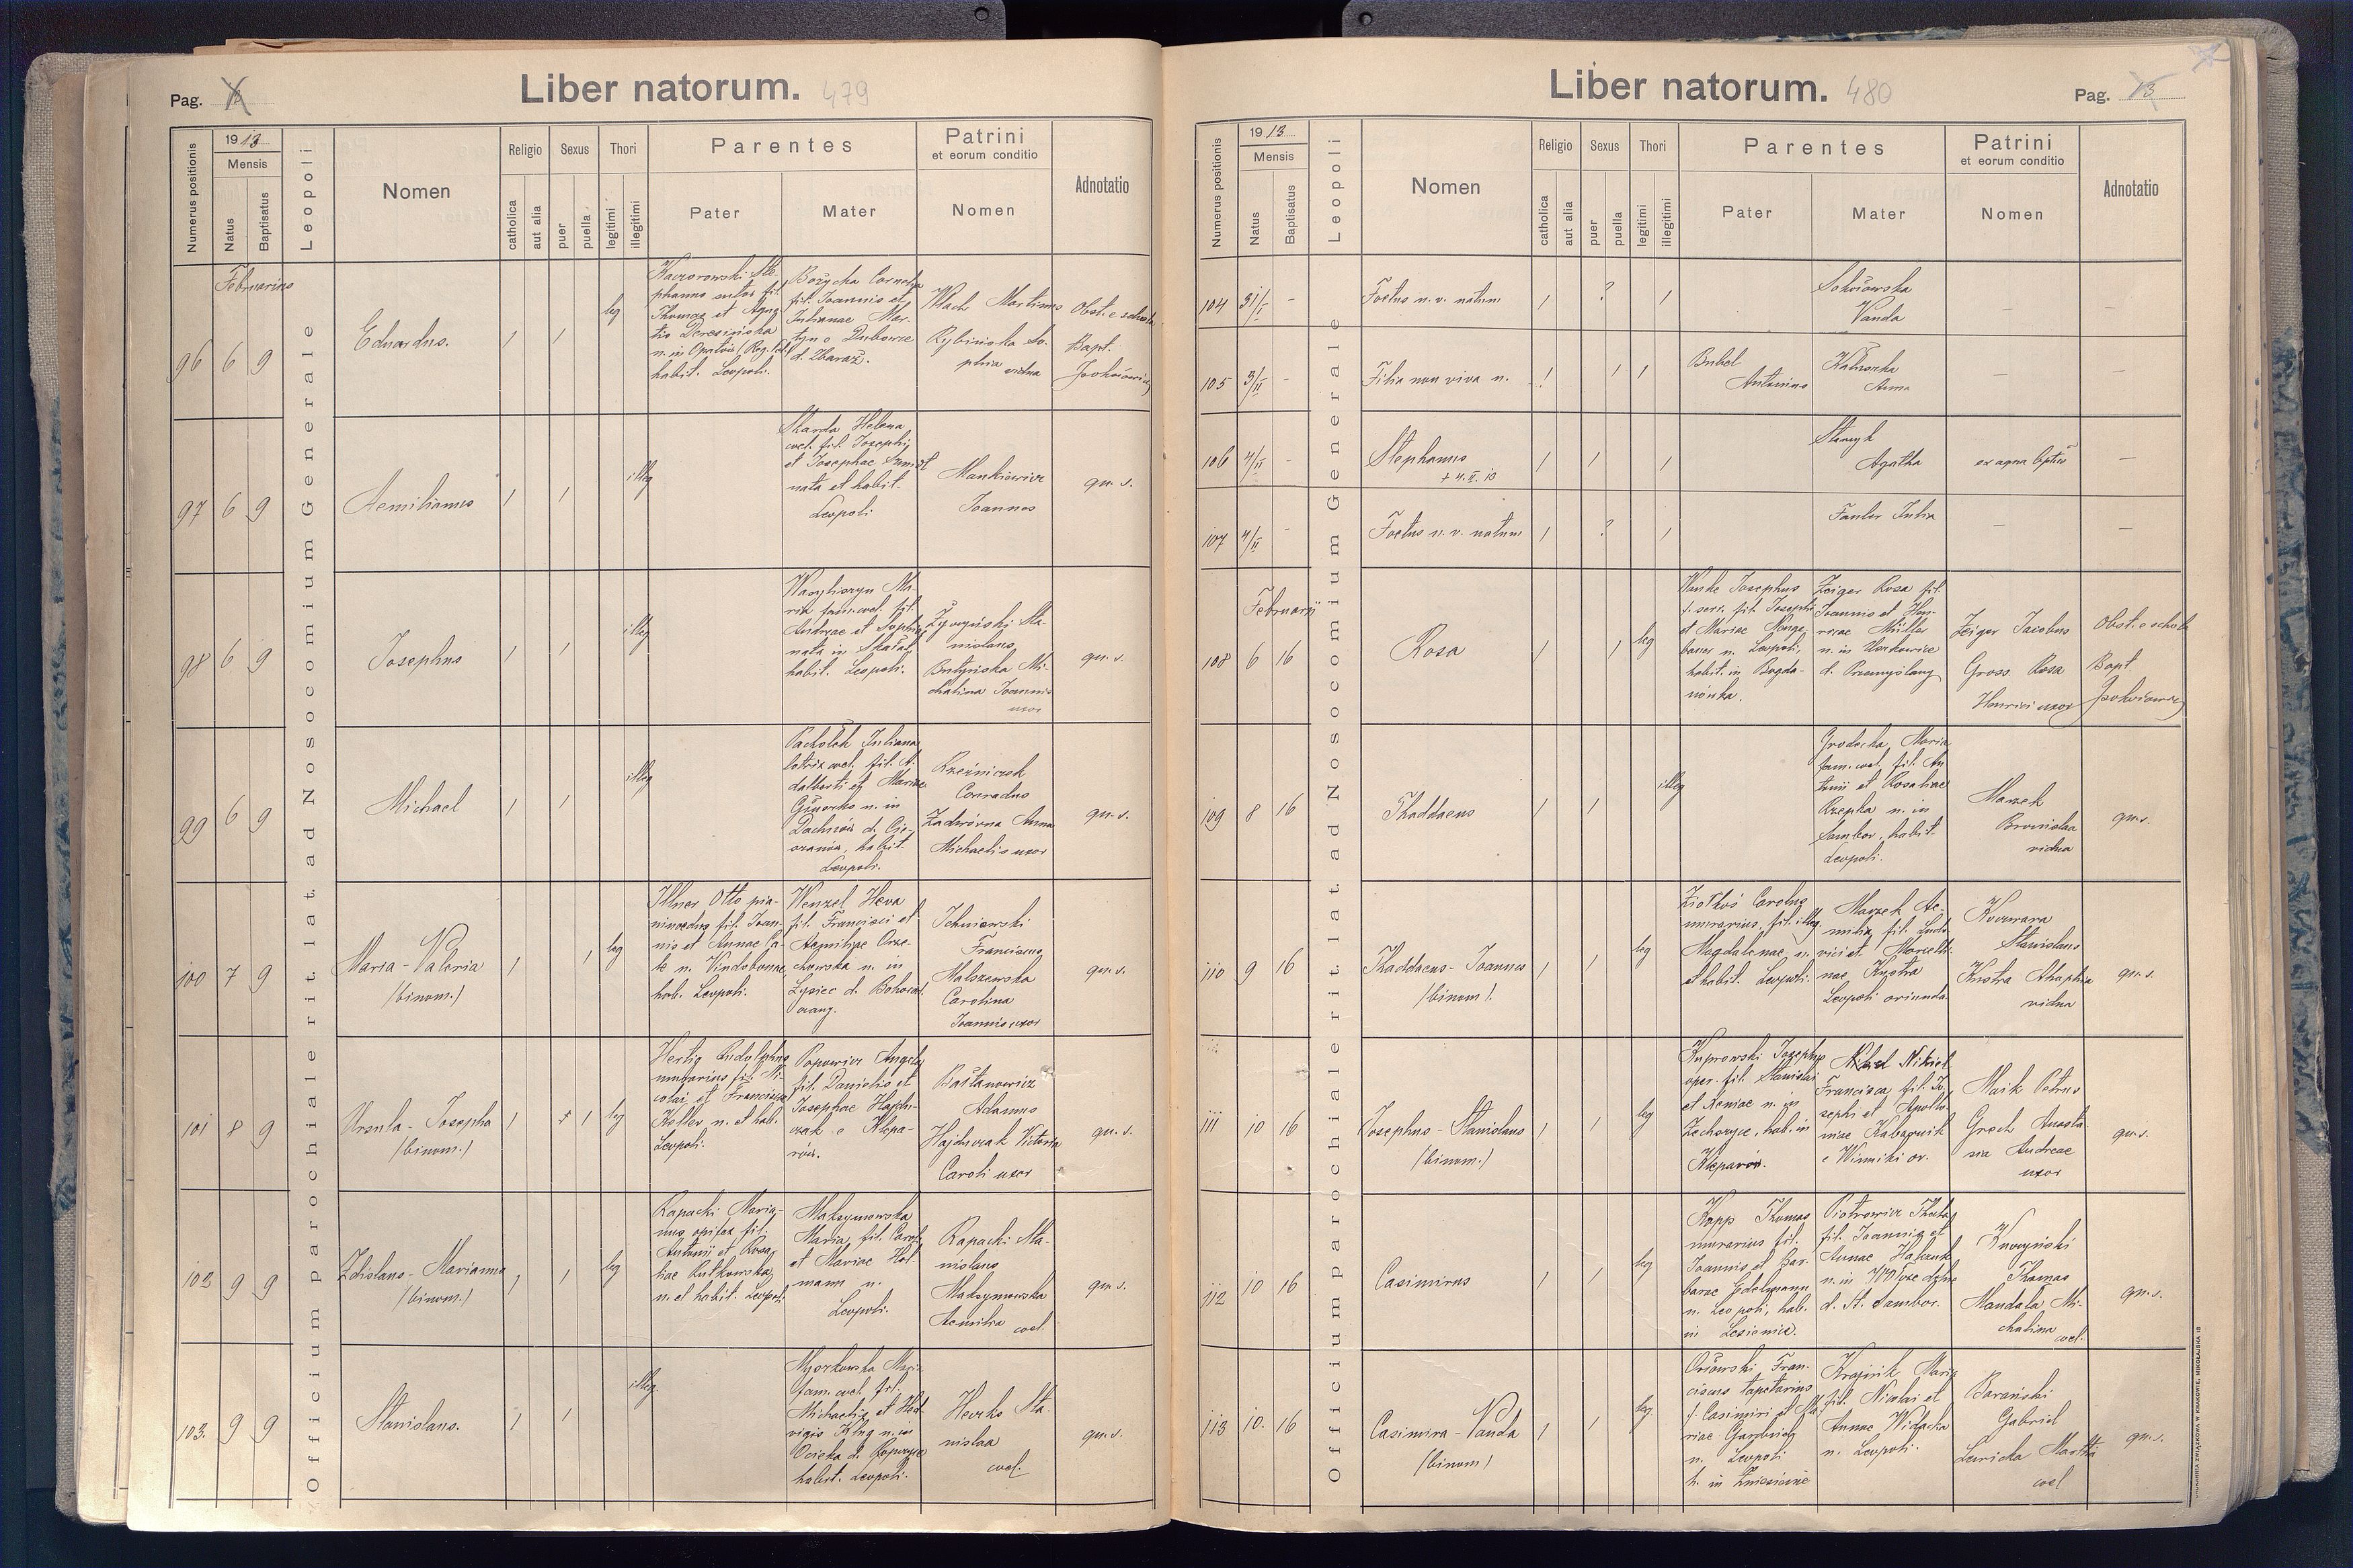 Pag.
Liber natorum. 479
Numerus positionis
1913
Mensis
Natus
Baptisatus
Leopoli
Nomen
Religio
catholica
aut alia
Sexus
puer
puella
Thori
legitimi
illegitimi
Parentes
Pater
Mater
Patrini
et eorum conditio
Nomen
Adnotatio
Officium parochiale rit. lat. ad Nosocomium Generale
Februarius
96 6 9
Eduardus.
/ /
leg
Kaczorowski Ste-
phanus sutor fil.
Thomae et Agne-
tis
n. in Opatów
habit. Leopoli.
Bożycka Cornelia
fil. Joannis et
Julianae Mar-
tyn e Dubowce
d. Zbaraż.
Wach Martinus
Rybińska So-
phia vidua
Obst. e schola
Bapt.
97 6 9
Aemilianus
/ /
illeg
Skarda Helena
coel. fil. Josephi
et Josephae
nata et habit.
Leopoli
Mankiewicz
Joannes
qu. s.
98 6 9
Josephus
/ /
illeg
Wasyliszyn Ma-
ria fam. coel. fil.
Andreae et Sophiae
nata in Skałat,
habit. Leopoli.
Życzyński Sta-
nislaus
Butyńska Mi-
chalina Joannis
uxor
qu. s.
99 6 9
Michael
/ /
illeg
Pachołek Juliana
lotrix coel. fil. A-
dalberti et Mariae
n. in
Dachnów d. Cie-
szanów, habit.
Leopoli.
Rzeźniczek
Conradus
Zadwórna Anna
Michaelis uxor
qu. s.
100 7 9
Maria-Valeria
(binom.)
/ /
leg
Illner Otto
fil. Joan-
nis et Annae
n. Vindobonae
hab. Leopoli.
Wenzel Heva
fil. Francisci et
Aemiliae Orze-
chowska n. in
Łysiec d. Bohorod-
czany.
Ichniowski
Franciscus
Malszewska
Carolina
Joannis uxor
qu. s.
101 8 9
Ursula-Josepha
(binom.)
/ /
leg
Hertig Rudolphus
murarius fil. Ni-
colai et Franciscae
Koller n. et hab.
Leopoli.
Popowicz Angela
fil. Danielis et
Josephae Hajdu-
czak e Klepa-
rów.
Bałtanowicz
Adamus
Hajduczak Victoria
Caroli uxor
qu. s.
102 9 9
Zdislaus-Marianus
(binom.)
/ /
leg
Rapacki Maria-
nus opifex fil.
Antonii et Rosa-
liae Rutkowska,
n. et habit. Leopoli.
Maksymowska
Maria, fil. Caroli
et Mariae Hof-
mann n.
Leopoli.
Rapacki Sta-
nislaus
Maksymowska
Aemilia coel.
qu. s.
103. 9 9
Stanislaus.
/ /
illeg.
Myszkowska Maria
fam. coel. fil.
Michaelis et Hed-
vigis Klug n. in
Ocieka d. Ropczyce
habit. Leopoli.
Hewko Sta-
nislaa
coel.
qu. s.
Liber natorum. 480
Pag. 13
Numerus positionis
1913
Mensis
Natus
Baptisatus
Leopoli
Nomen
Religio
catholica
aut alia
Sexus
puer
puella
Thori
legitimi
illegitimi
Parentes
Pater
Mater
Patrini
et eorum conditio
Nomen
Adnotatio
Officium parochiale rit. lat. ad Nosocomium Generale
104 31/I -
Foetus n. v. natum
/ ? /
Sokołowska
Vanda
105 3/II -
Filia non viva n.
/ / /
Bubel
Antonius
Anna
106 4/II -
Stephanus
+ 4. II. 13
/ / /
Agatha
ex aqua bptus
107 4/II -
Foetus n. v. natum
/ ? /
Julia
Februarii
108 6 16
Rosa
/ /
leg
Wanke Josephus
f. serr. fil. Josephi
et Mariae
n. Leopoli,
habit. in Bogda-
nówka.
Zeiger Rosa fil.
Joannis et Hen-
ricae Müller
n. in Uszkowice
d. Przemyślany
Zeiger Jacobus
Gross Rosa
Henrici uxor
Obst. e schola
Bapt
109 8 16
Thaddaeus
/ /
illeg
Grodecka Maria
fam. coel. fil. An-
tonii et Rosaliae
Rzepka n. in
Sambor, habit.
Leopoli.
Marzek
Bronislaa
vidua
qu. s.
110 9 16
Thaddaeus-Joannes
(binom.)
/ /
leg
Ziółkoś Carolus
murarius, fil. illeg
Magdalenae, n.
et habit. Leopoli.
Marzek Ae-
milia fil. Ludo-
vici et Marcelli-
nae Kustra
Leopoli oriunda.
Koczwara
Stanislaus
Kustra
vidua
qu. s.
111 10 16
Josephus-Stanislaus
(binom.)
/ /
leg
Kuprowski Josephus
oper. fil. Stanislai
et Xeniae n. in
hab. in
Kleparów.
Nikiel
Francisca, fil. Jo-
sephi et Apollo-
niae
e Winniki or.
Maik Petrus
Grech Anasta-
sia Andreae
uxor
qu. s.
112 10 16
Casimirus
/ /
leg
Kopp Thomas
murarius fil.
Joannis et Bar-
barae
n. Leopoli, hab.
in Lesienice.
Piotrowicz Thecla,
fil. Joannis et
Annae
n. in Wołcze dolne
d. St. Sambor.
Kuczyński
Thomas
Mandala Mi-
chalina
coel.
qu. s.
113 10. 16
Casimira-Vanda
(binom)
/ /
leg.
Orłowski Fran-
ciscus tapetarius
f. Casimiri et Ma-
riae
n. Leopoli
h. in Zniesienie
Krajnik Maria
fil. Nicolai et
Annae Widacka
n. Leopoli.
Barański
Gabriel
Lewicka Martha
coel
qu. s.
DRUKARNIA ZWIĄZKOWA W KRAKOWIE, MIKOŁAJSKA 13